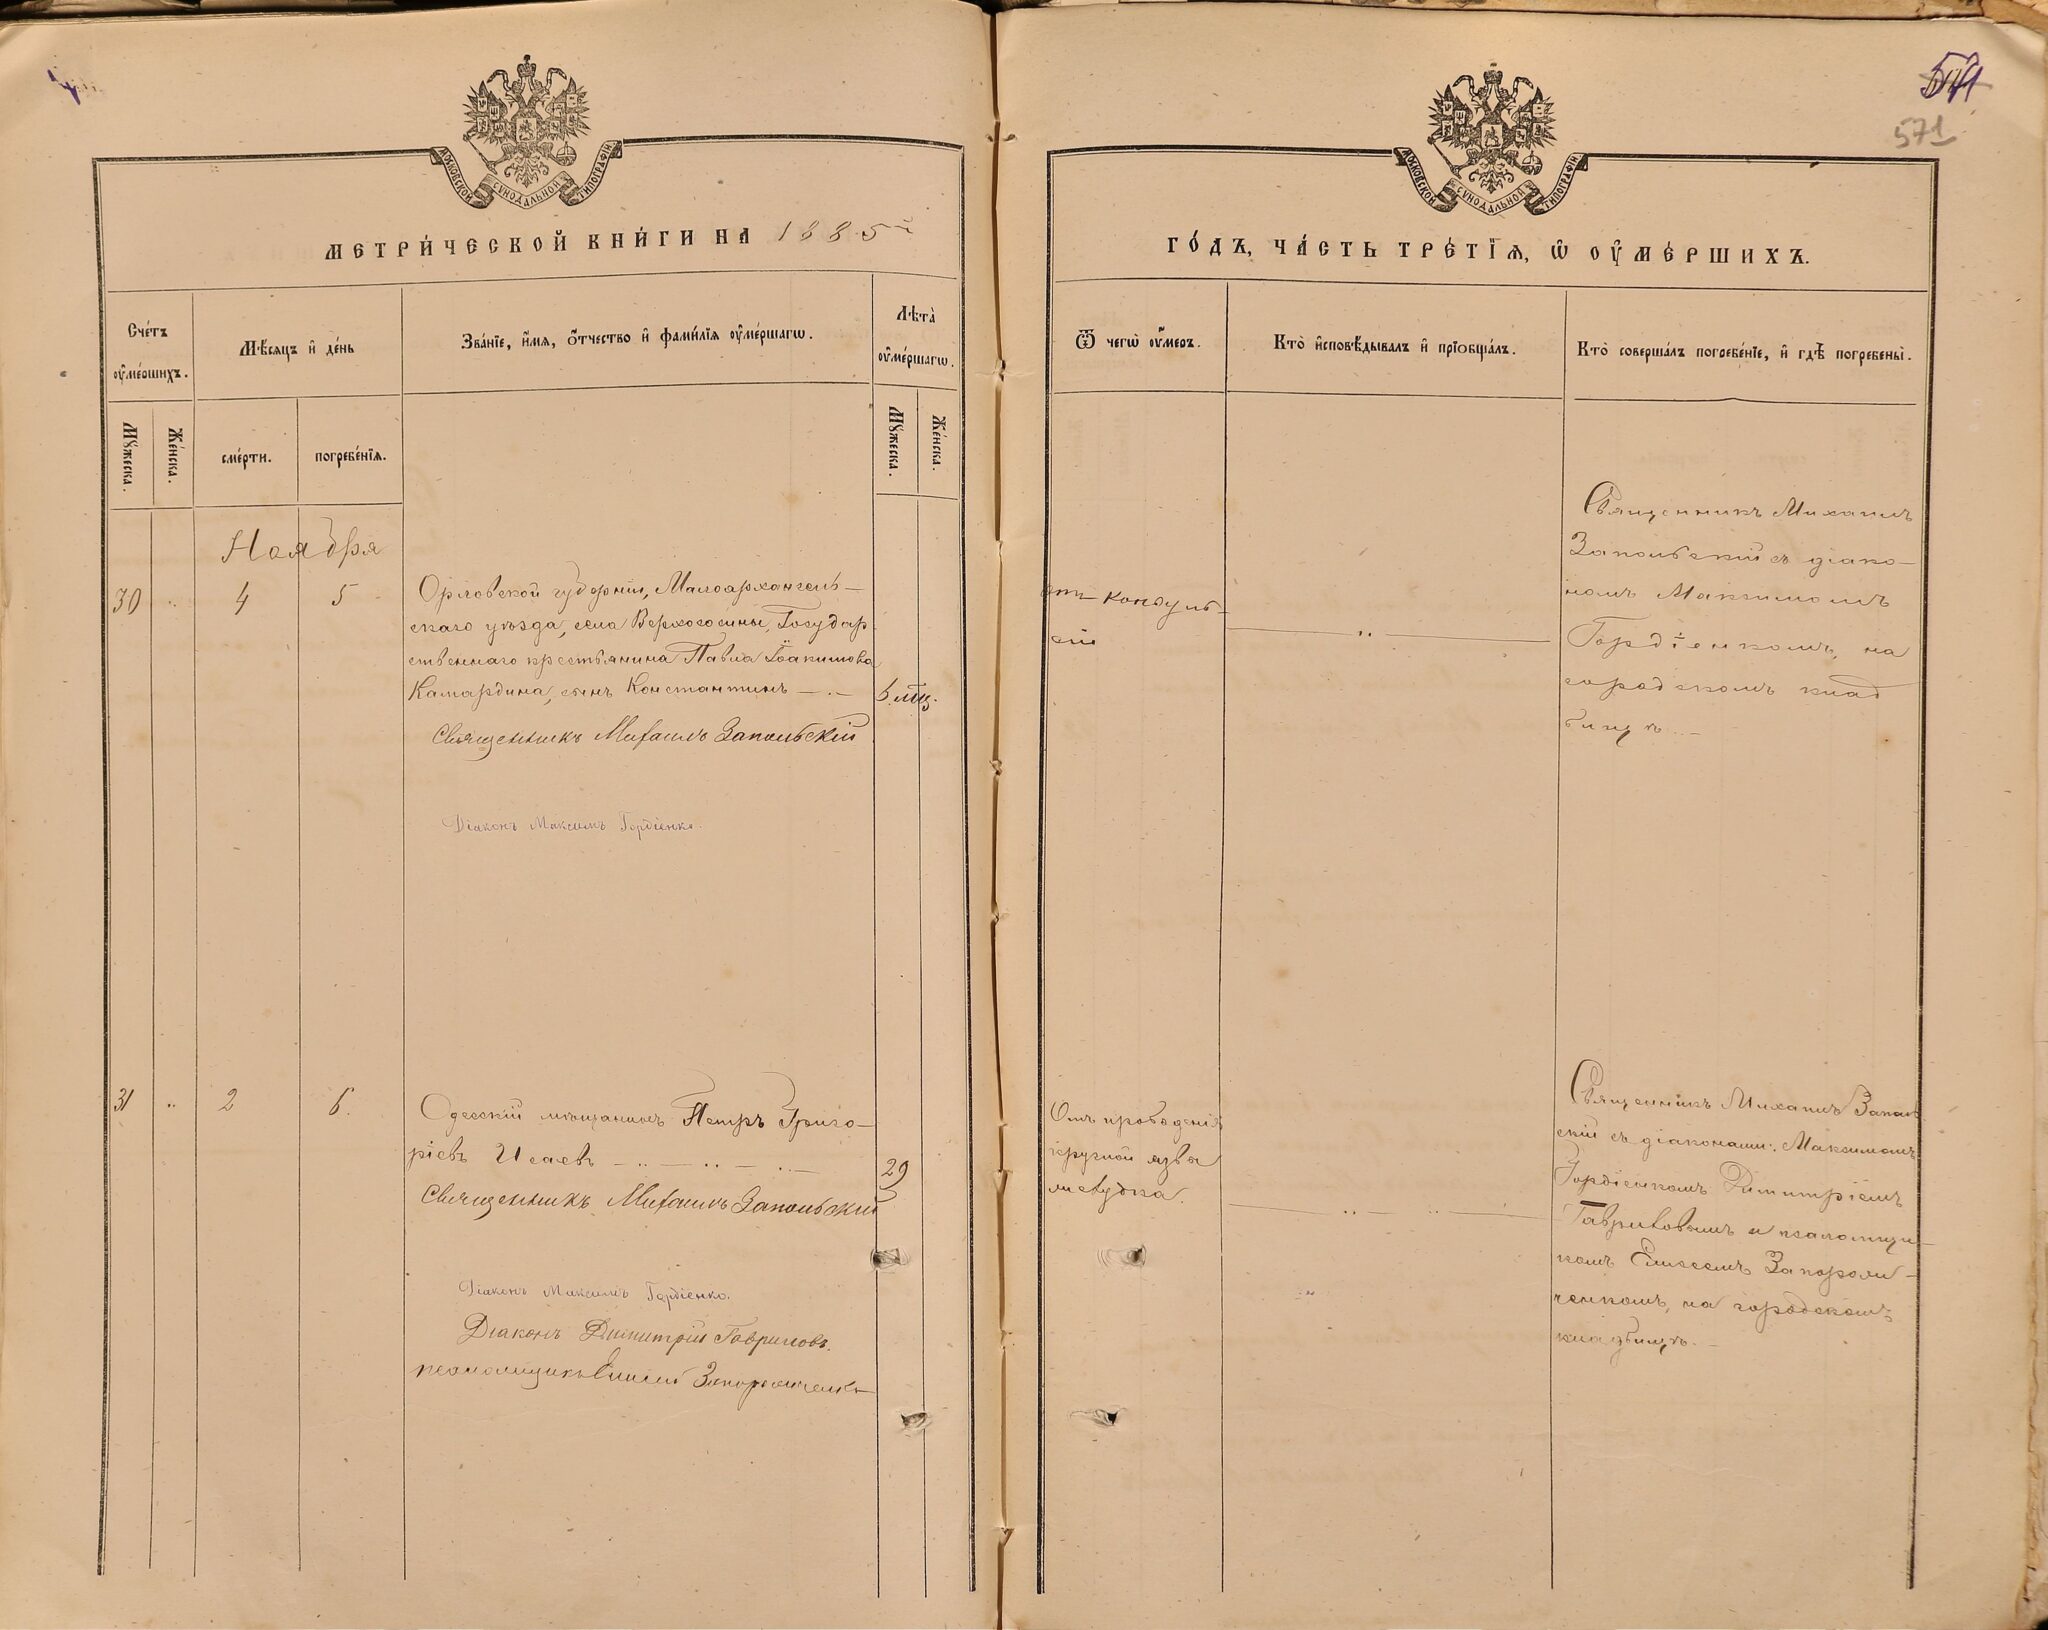 571
МОСКОВСКОЙ СѴНОДАЛЬНОЙ ТИПОГРАФІИ
МОСКОВСКОЙ СѴНОДАЛЬНОЙ ТИПОГРАФІИ
МЕТРИ́ЧЕСКОЙ КНИ́ГИ НА 1885й
ГО́ДЪ, ЧА́СТЬ ТРЕ́ТІѦ, Ѡ҆ ОУ҆МЕ́РШИХЪ.
Сче́тъ оу҆ме́ршихъ.
Мѣ́сѧцъ и҆ де́нь
Зва́нїе, и҆́мѧ, ѻ҆́тчество и҆ фами́лїѧ оу҆ме́ршагѡ.
Лѣ́та оу҆ме́ршагѡ.
Ѿ чегѡ̀ оу҆́меръ.
Кто̀ и҆сповѣ́дывалъ и҆ прїѡбща́лъ.
Кто̀ соверша́лъ погребе́нїе, и҆ гдѣ̀ погребены̀.
Мꙋ́жеска.
Же́нска.
сме́рти.
погребе́нїѧ.
Мꙋ́жеска.
Же́нска.
Ноября
30 .. 4 5
Орловской губерніи, Малоархангель-
скаго уѣзда, села Верхососны, Государ
ственнаго крестьянина Павла Іоакимова
Камардина, сынъ Константинъ — . —
6 мц.
Священникъ Михаилъ Запольскій
Діаконъ Максимъ Гордіенко.
отъ конвуль-
сій
— .. —
Священникъ Михаилъ
Запольскій съ діако-
номъ Максимомъ
Гордіенкомъ, на
городскомъ клад
бищѣ. —
31 .. 2 6.
Одесскій мѣщанинъ Петръ Григо-
ріевъ Исаевъ — .. — .. — .. —
29
Священникъ Михаилъ Запольскій
Діаконъ Максимъ Гордіенко.
Діаконъ Димитрій Гавриловъ.
псаломщикъ Елисей Запорожченко
Отъ прободенія
круглой язвы
желудка.
— .. — .. —
Священникъ Михаилъ Заполь
скій съ діаконами: Максимомъ
Гордіенкомъ Димитріемъ
Гавриловымъ и псаломщи-
комъ Елисеемъ Запорож-
ченкомъ, на городскомъ
кладбищѣ. —